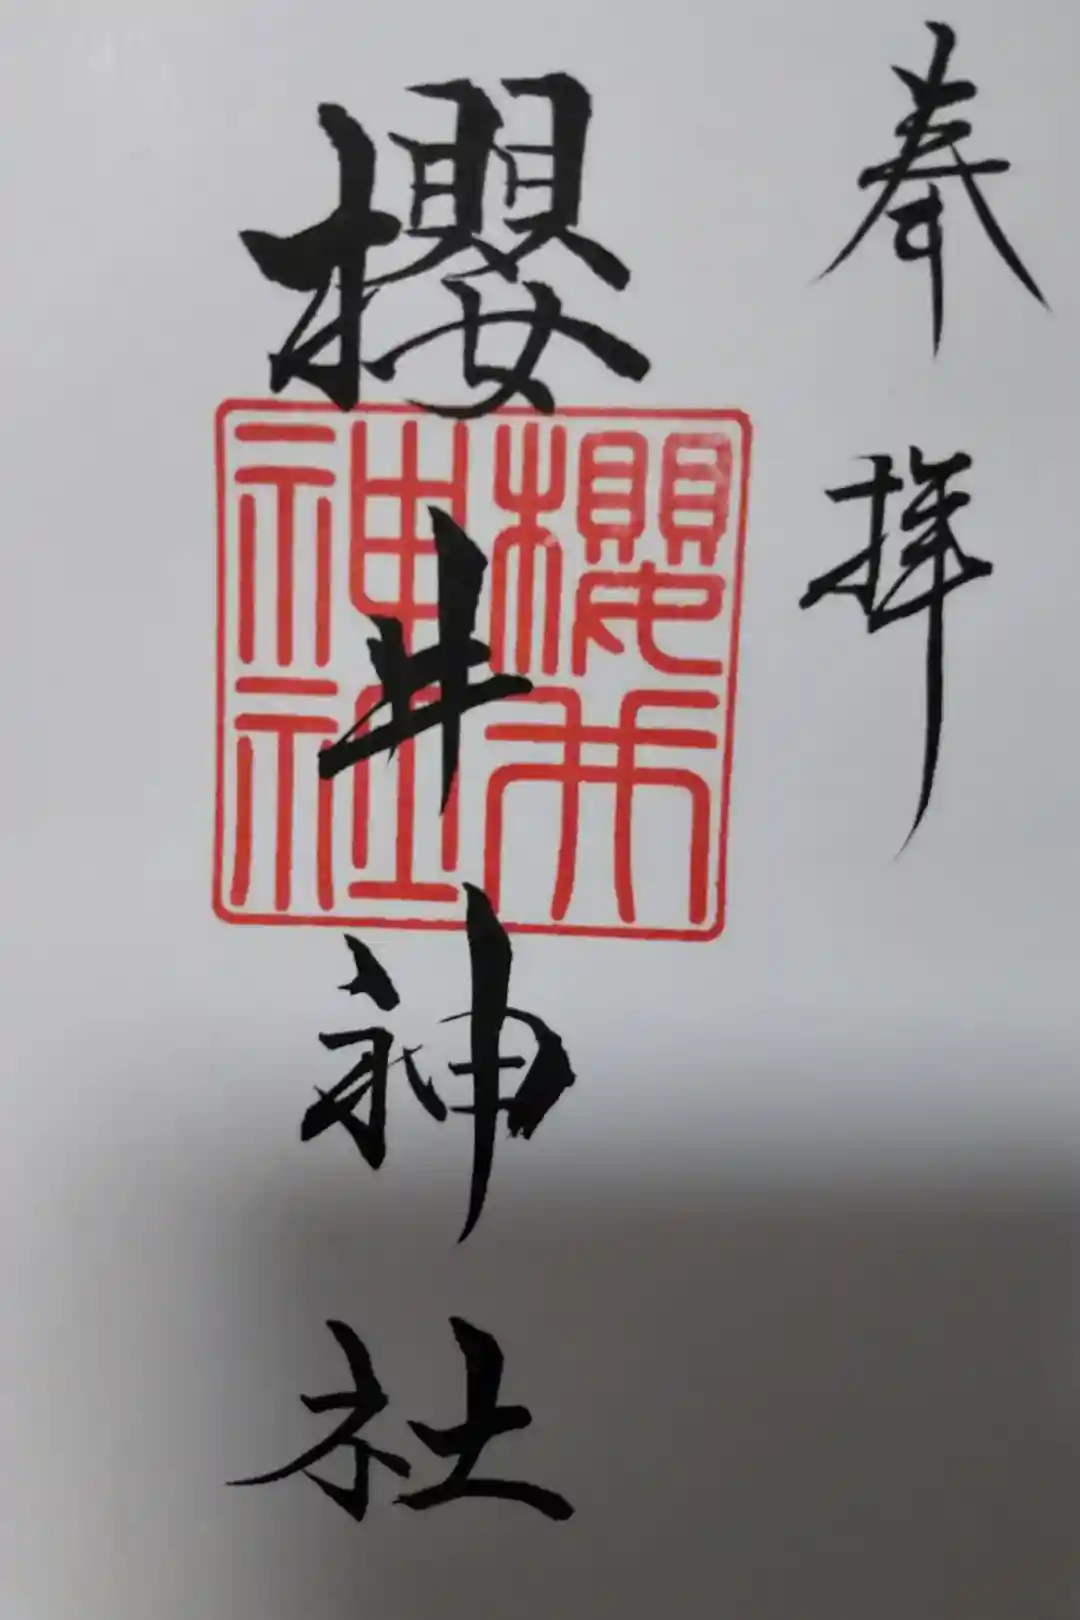 奉拝
櫻井神社
櫻井神社